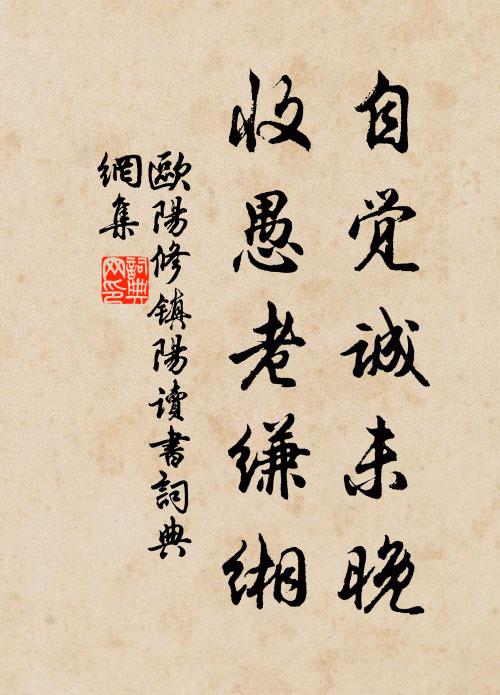 自觉诚未晚
收愚老缣缃
歐陽修鎮陽讀書詞典
網集
詞典網印